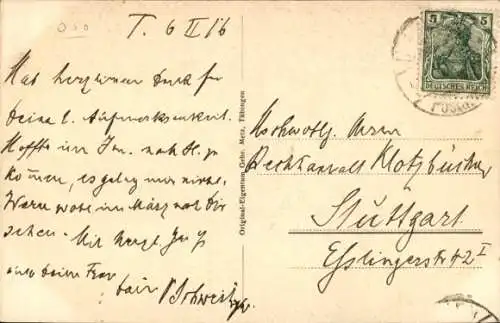 T. 6 II 16
Hab herzlichen Dank für
Deine l. Aufmerksamkeit.
Hoffte im Jan. nach St. zu
kommen, es gelang mir nicht.
Werde wohl im März nach Dir
sehen. Mit herzl. Gruß
und Deiner Frau
Dein Schweitzer
Original-Eigentum Gebr. Metz, Tübingen
5 5
DEUTSCHES REICH
Hochwohlg. Herrn
Rechtsanwalt Klotzbücher
Stuttgart
Esslingerstr 42 I